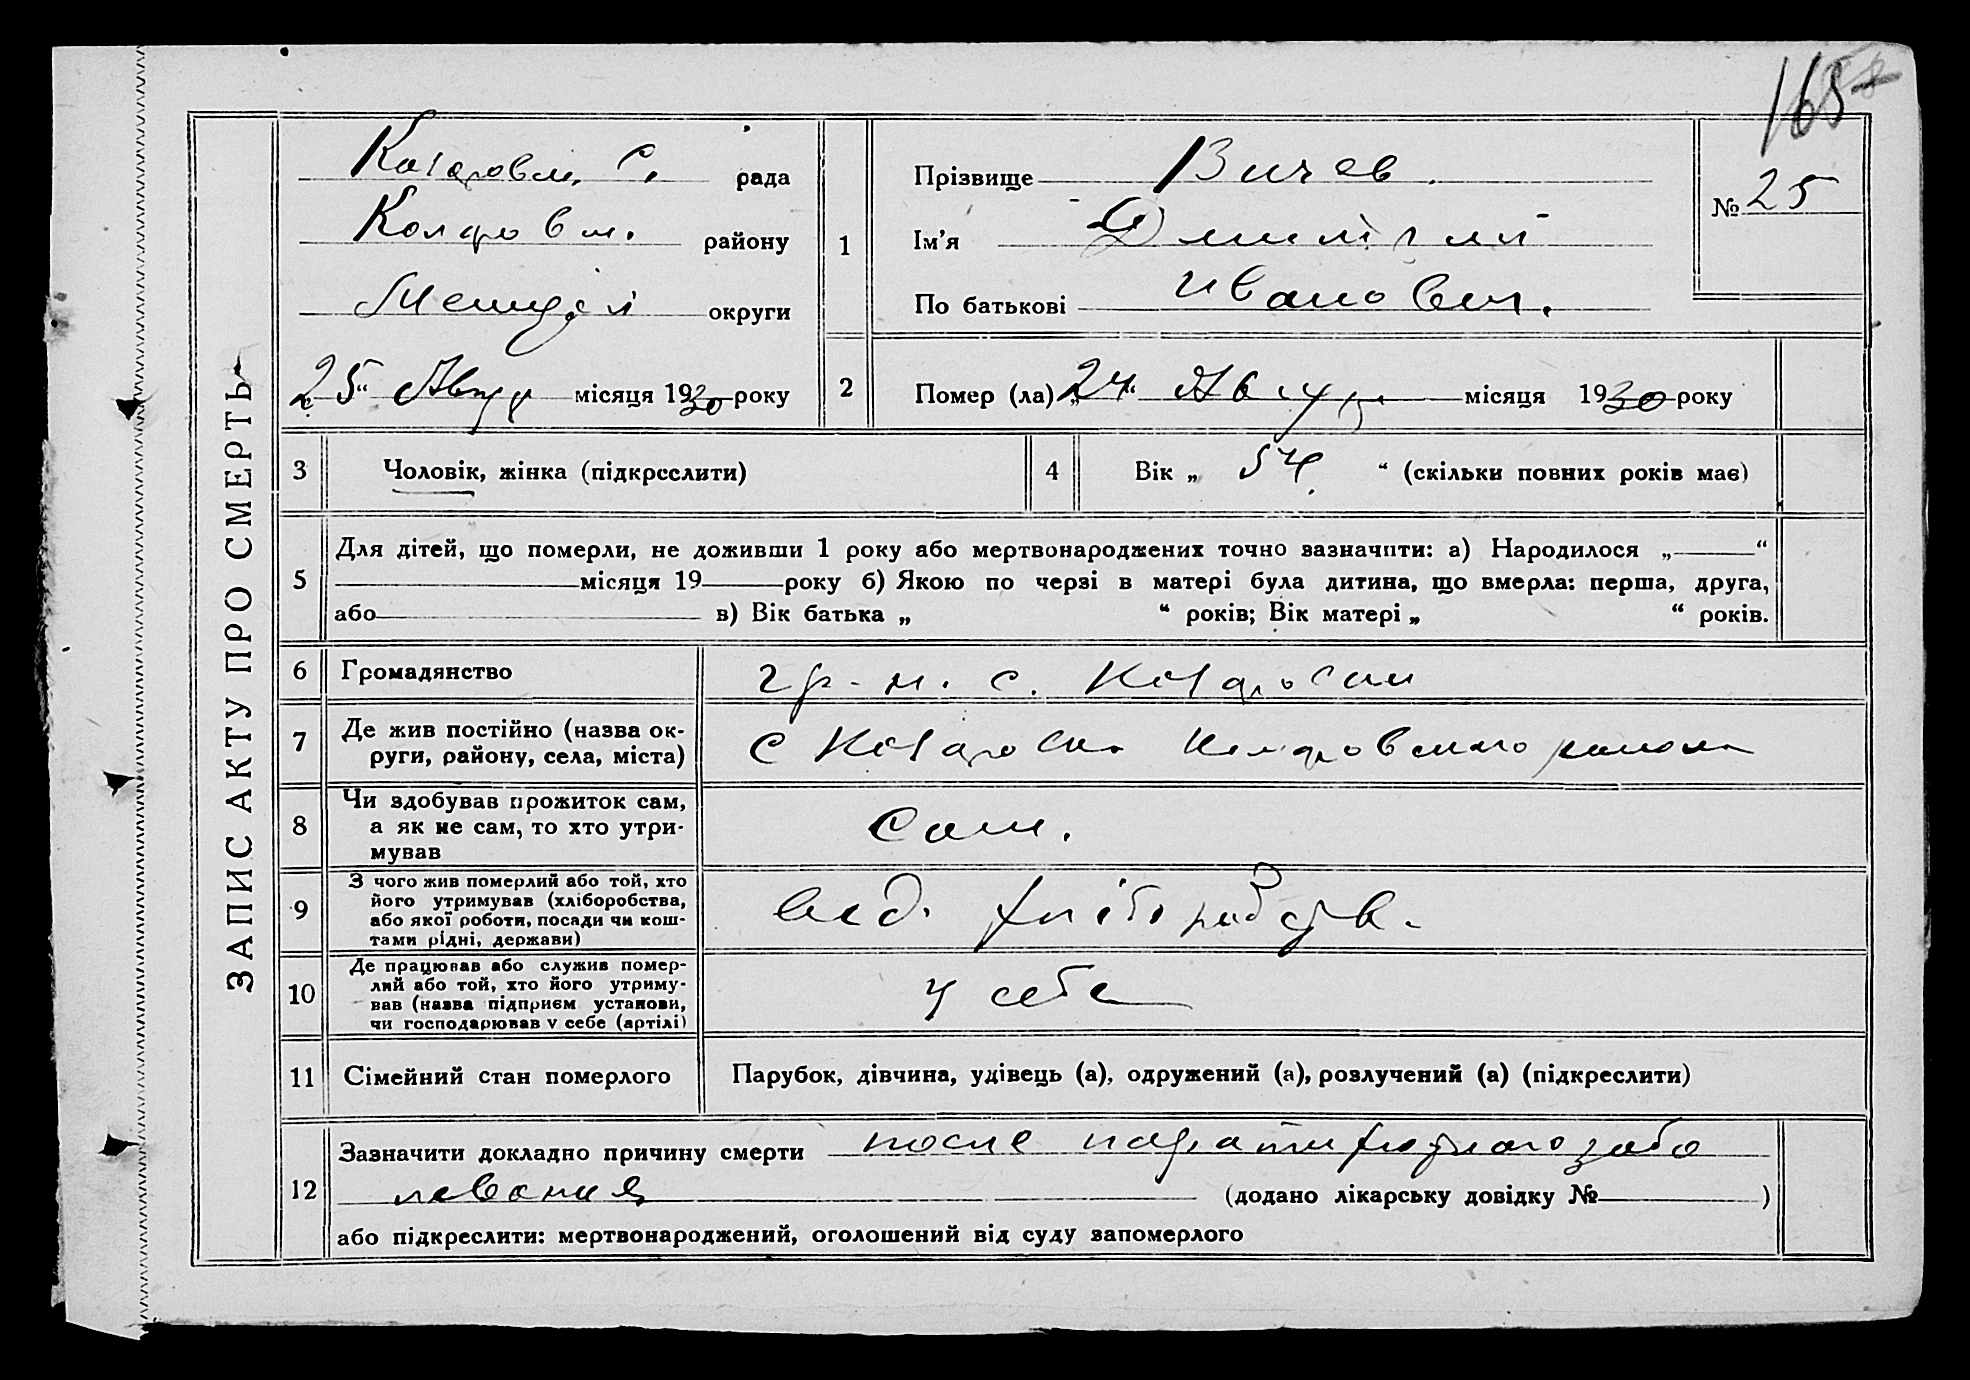 165
ЗАПИС АКТУ ПРО СМЕРТЬ
С. рада
району
округи
"25" Авгус місяця 1930 року
1
Прізвище Вичев
Ім'я Дмитрий
По батькові Иванович.
№ 25
2
Помер (ла) "24" Авгус місяця 1930 року
3
Чоловік, жінка (підкреслити)
4
Вік „ 54 " (скільки повних років має)
5
Для дітей, що померли, не доживши 1 року або мертвонароджених точно зазначити: а) Народилося „ “
місяця 19 року б) Якою по черзі в матері була дитина, що вмерла: перша, друга,
або в) Вік батька „ “ років; Вік матері „ “ років.
6
Громадянство
гр-н. с.
7
Де жив постійно (назва ок-
руги, району, села, міста)
с района
8
Чи здобував прожиток сам,
а як не сам, то хто утри-
мував
Сам.
9
З чого жив померлий або той, хто
його утримував (хліборобства,
або якої роботи, посади чи кош-
тами рідні, держави)
від. хліборобств.
10
Де працював або служив помер-
лий або той, хто його утриму-
вав (назва підприєм установи,
чи господарював у себе (артілі)
у себе
11
Сімейний стан померлого
Парубок, дівчина, удівець (а), одружений (а), розлучений (а) (підкреслити)
12
Зазначити докладно причину смерти после паратифозного забо
левания (додано лікарську довідку № )
або підкреслити: мертвонароджений, оголошений від суду запомерлого